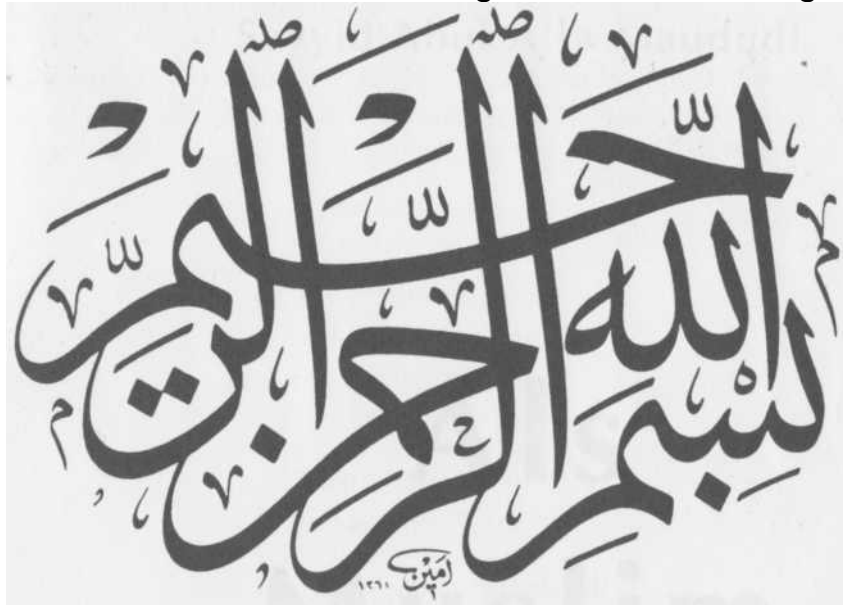 بِسْمِ اللهِ الرَّحْمٰنِ الرَّحِيمِ
امين